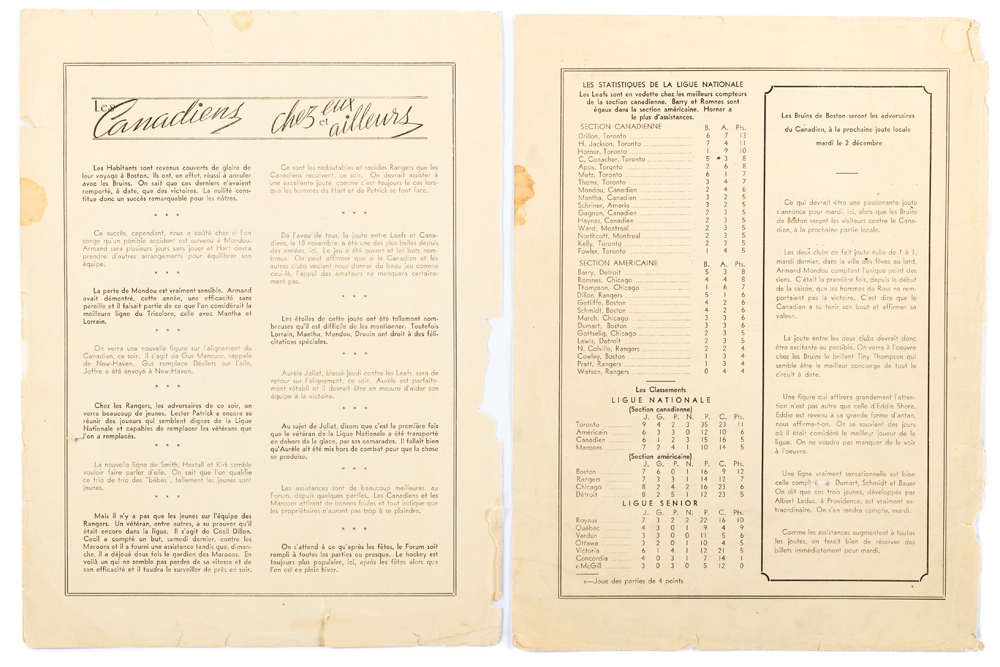 Les Canadiens chez eux et ailleurs
Les Habitants sont revenus couverts de gloire de
leur voyage à Boston. Ils ont, en effet, réussi à annuler
avec les Bruins. On sait que ces derniers n'avaient
remporté, à date, que des victoires. La nullité cons-
titue donc un succès remarquable pour les nôtres.
* * *
Ce succès, cependant, nous a coûté cher si l'on
songe qu'un pénible accident est survenu à Mondou.
Armand sera plusieurs jours sans jouer et Hart devra
prendre d'autres arrangements pour équilibrer son
équipe.
* * *
La perte de Mondou est vraiment sensible. Armand
avait démontré, cette année, une efficacité sans
pareille et il faisait partie de ce que l'on considérait la
meilleure ligne du Tricolore, celle avec Mantha et
Lorrain.
* * *
On verra une nouvelle figure sur l'alignement du
Canadien, ce soir. Il s'agit de Gus Mancuso, rappelé
de New-Haven. Gus remplace Désilets sur l'aile.
Joffre a été envoyé à New-Haven.
* * *
Chez les Rangers, les adversaires de ce soir, on
verra beaucoup de jeunes. Lester Patrick a encore su
réunir des joueurs qui semblent dignes de la Ligue
Nationale et capables de remplacer les vétérans que
l'on a remplacés.
* * *
La nouvelle ligne de Smith, Hextall et Kirk semble
vouloir faire parler d'elle. On sait que l'on qualifie
ce trio de trio des "bébés", tellement les jeunes sont
jeunes.
* * *
Mais il n'y a pas que les jeunes sur l'équipe des
Rangers. Un vétéran, entre autres, a su prouver qu'il
était encore dans la ligue. Il s'agit de Cecil Dillon.
Cecil a compté un but, samedi dernier, contre les
Maroons et il a fourni une assistance tandis que, diman-
che, il a déjoué deux fois le gardien des Maroons. En
voilà un qui ne semble pas perdre de sa vitesse et de
son efficacité et il faudra le surveiller de près en soir.
Ce sont les redoutables et rapides Rangers que les
Canadiens recoivent, ce soir. On devrait assister à
une excellente joute, comme c'est toujours le cas lors-
que les hommes de Hart et de Patrick se font face.
* * *
De l'aveu de tous, la joute entre Leafs et Cana-
diens, le 18 novembre, a été une des plus belles depuis
des années, ici. Le jeu a été ouvert et les buts nom-
breux. On peut affirmer que si le Canadien et les
autres clubs veulent nous donner du beau jeu comme
ceui-là, l'appui des amateurs ne manquera certaine-
ment pas.
* * *
Les étoiles de cette joute ont été tellement nom-
breuses qu'il est difficile de les mentionner. Toutefois
Lorrain, Mantha, Mondou, Drouin ont droit à des féli-
citations spéciales.
* * *
Aurèle Joliat, blessé jeudi contre les Leafs, sera de
retour sur l'alignement, ce soir. Aurèle est parfaite-
ment rétabli et il devrait être en mesure d'aider son
équipe à la victoire.
* * *
Au sujet de Joliat, disons que c'est la première fois
que le vétéran de la Ligue Nationale a été transporté
en dehors de la glace, par ses camarades. Il fallait bien
qu'Aurèle ait été mis hors de combat pour que la chose
se produise.
* * *
Les assistances sont de beaucoup meilleures, au
Forum, depuis quelques parties. Les Canadiens et les
Maroons attirent de bonnes foules et tout indique que
les propriétaires n'auront pas trop à se plaindre.
* * *
On s'attend à ce qu'après les fêtes, le Forum soit
rempli à toutes les parties ou presque. Le hockey est
toujours plus populaire, ici, après les fêtes alors que
l'on est en plein hiver.
LES STATISTIQUES DE LA LIGUE NATIONALE
Les Leafs sont en vedette chez les meilleurs compteurs
de la section canadienne. Barry et Romnes sont
égaux dans la section américaine. Horner a
le plus d'assistances.
SECTION CANADIENNE B. A. Pts.
Drillon, Toronto 6 7 13
H. Jackson, Toronto 7 4 11
Horner, Toronto 1 9 10
C. Conacher, Toronto 5 3 8
Apps, Toronto 2 6 8
Metz, Toronto 6 1 7
Thoms, Toronto 3 4 7
Mondou, Canadien 2 4 6
Mantha, Canadien 3 2 5
Schriner, Amerks 3 2 5
Gagnon, Canadien 2 3 5
Haynes, Canadien 2 3 5
Ward, Montreal 2 3 5
Northcott, Montreal 2 3 5
Kelly, Toronto 2 3 5
Fowler, Toronto 1 4 5
SECTION AMERICAINE B. A. Pts.
Barry, Detroit 5 3 8
Romnes, Chicago 4 4 8
Thompson, Chicago 1 6 7
Dillon, Rangers 5 1 6
Getliffe, Boston 4 2 6
Schmidt, Boston 4 2 6
March, Chicago 3 3 6
Dumart, Boston 3 3 6
Gottselig, Chicago 2 3 5
Lewis, Detroit 2 3 5
N. Colville, Rangers 2 2 4
Cowley, Boston 1 3 4
Pratt, Rangers 1 3 4
Watson, Rangers 0 4 4
Les Classements
LIGUE NATIONALE
(Section canadienne)
J. G. P. N. P. C. Pts.
Toronto 9 4 2 3 35 23 11
Américain 6 3 3 0 12 10 6
Canadien 6 1 2 3 15 16 5
Maroons 7 2 4 1 10 14 5
(Section américaine)
J. G. P. N. P. C. Pts.
Boston 7 6 0 1 16 9 12
Rangers 7 3 3 1 14 12 7
Chicago 8 2 4 2 16 23 6
Détroit 8 2 5 1 12 23 5
LIGUE SENIOR
J. G. P. N. P. C. Pts.
Royaux 7 3 2 2 22 16 10
Québec 4 3 0 1 9 4 9
Verdun 3 3 0 0 11 5 6
Ottawa 3 2 0 1 10 4 5
Victoria 6 1 4 1 12 21 5
Concordia 4 0 3 1 7 14 1
x-McGill 3 0 3 0 5 12 0
x—Joue des parties de 4 points
Les Bruins de Boston seront les adversaires
du Canadien, à la prochaine joute locale
mardi le 2 décembre
Ce qui devrait être une passionante joute
s'annonce pour mardi, ici, alors que les Bruins
de Boston seront les visiteurs contre le Cana-
dien, à la prochaine partie locale.
Les deux clubs on fait joute nulle de 1 à 1,
mardi dernier, dans la ville des fèves au lard.
Armand Mondou comptant l'unique point des
siens. C'était la première fois, depuis le début
de la saison, que les hommes de Ross ne rem-
portaient pas la victoire. C'est dire que le
Canadien a su tenir son bout et affirmer sa
valeur.
La joute entre les deux clubs devrait donc
être excitante au possible. On verra à l'oeuvre
chez les Bruins le brillant Tiny Thompson qui
semble être le meilleur concierge de tout le
circuit à date.
Une figure qui attirera grandement l'atten-
tion n'est pas autre que celle d'Eddie Shore.
Eddie est revenu à sa grande forme d'antan,
nous affirme-t-on. On se souvient des jours
où il était considéré le meilleur joueur de la
ligue. On ne voudra pas manquer de le voir
à l'oeuvre.
Une ligne vraiment sensationnelle est bien
celle Dumart, Schmidt et Bauer
On dit que ces trois jeunes, développés par
Albert Leduc, à Providence, est vraiment ex-
traordinaire. On s'en rendra compte, mardi.
Comme les assistances augmentent à toutes
les joutes, on ferait bien de réserver des
billets immédiatement pour mardi.